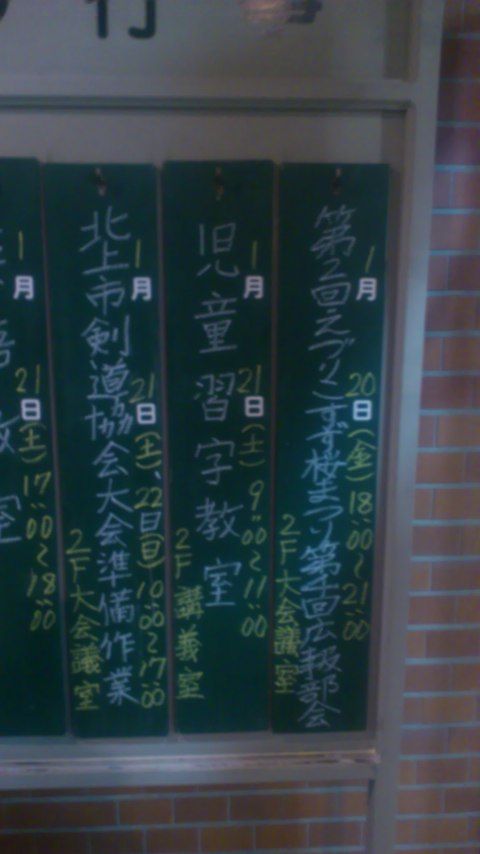 行
1月20日(金)18:00〜21:00
第2回えづりこすず桜まつり第1回広報部会
2F大会議室
1月21日(土)9:00〜11:00
児童習字教室
2F講義室
1月21日(土)、22日(日)10:00〜17:00
北上市剣道協会大会準備作業
2F大会議室
1月21日(土)17:00〜18:00
語教室